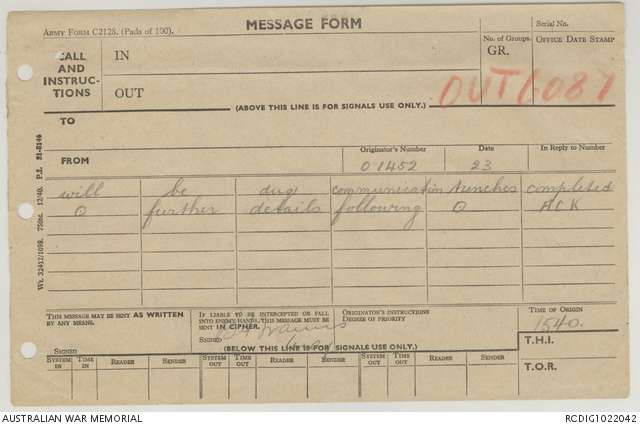 ARMY FORM C2128. (Pads of 100).
MESSAGE FORM
Serial No.
CALL AND INSTRUCTIONS
IN
No. of Groups.
GR.
OFFICE DATE STAMP
OUT
OUT 6087
(ABOVE THIS LINE IS FOR SIGNALS USE ONLY.)
TO
FROM
Originator's Number
Date
In Reply to Number
O 1452
23
will be dug communication trenches completed
O further details following O ACK
Wt. 32412/1098. 750m. 12/40. P.I. 51-8146
THIS MESSAGE MAY BE SENT AS WRITTEN BY ANY MEANS.
IF LIABLE TO BE INTERCEPTED OR FALL INTO ENEMY HANDS, THIS MESSAGE MUST BE SENT IN CIPHER.
ORIGINATOR'S INSTRUCTIONS
DEGREE OF PRIORITY
TIME OF ORIGIN
1540.
SIGNED
SIGNED
(BELOW THIS LINE IS FOR SIGNALS USE ONLY.)
T.H.I.
T.O.R.
SYSTEM IN
TIME IN
READER
SENDER
SYSTEM OUT
TIME OUT
READER
SENDER
SYSTEM OUT
TIME OUT
READER
SENDER
AUSTRALIAN WAR MEMORIAL
RCDIG1022042